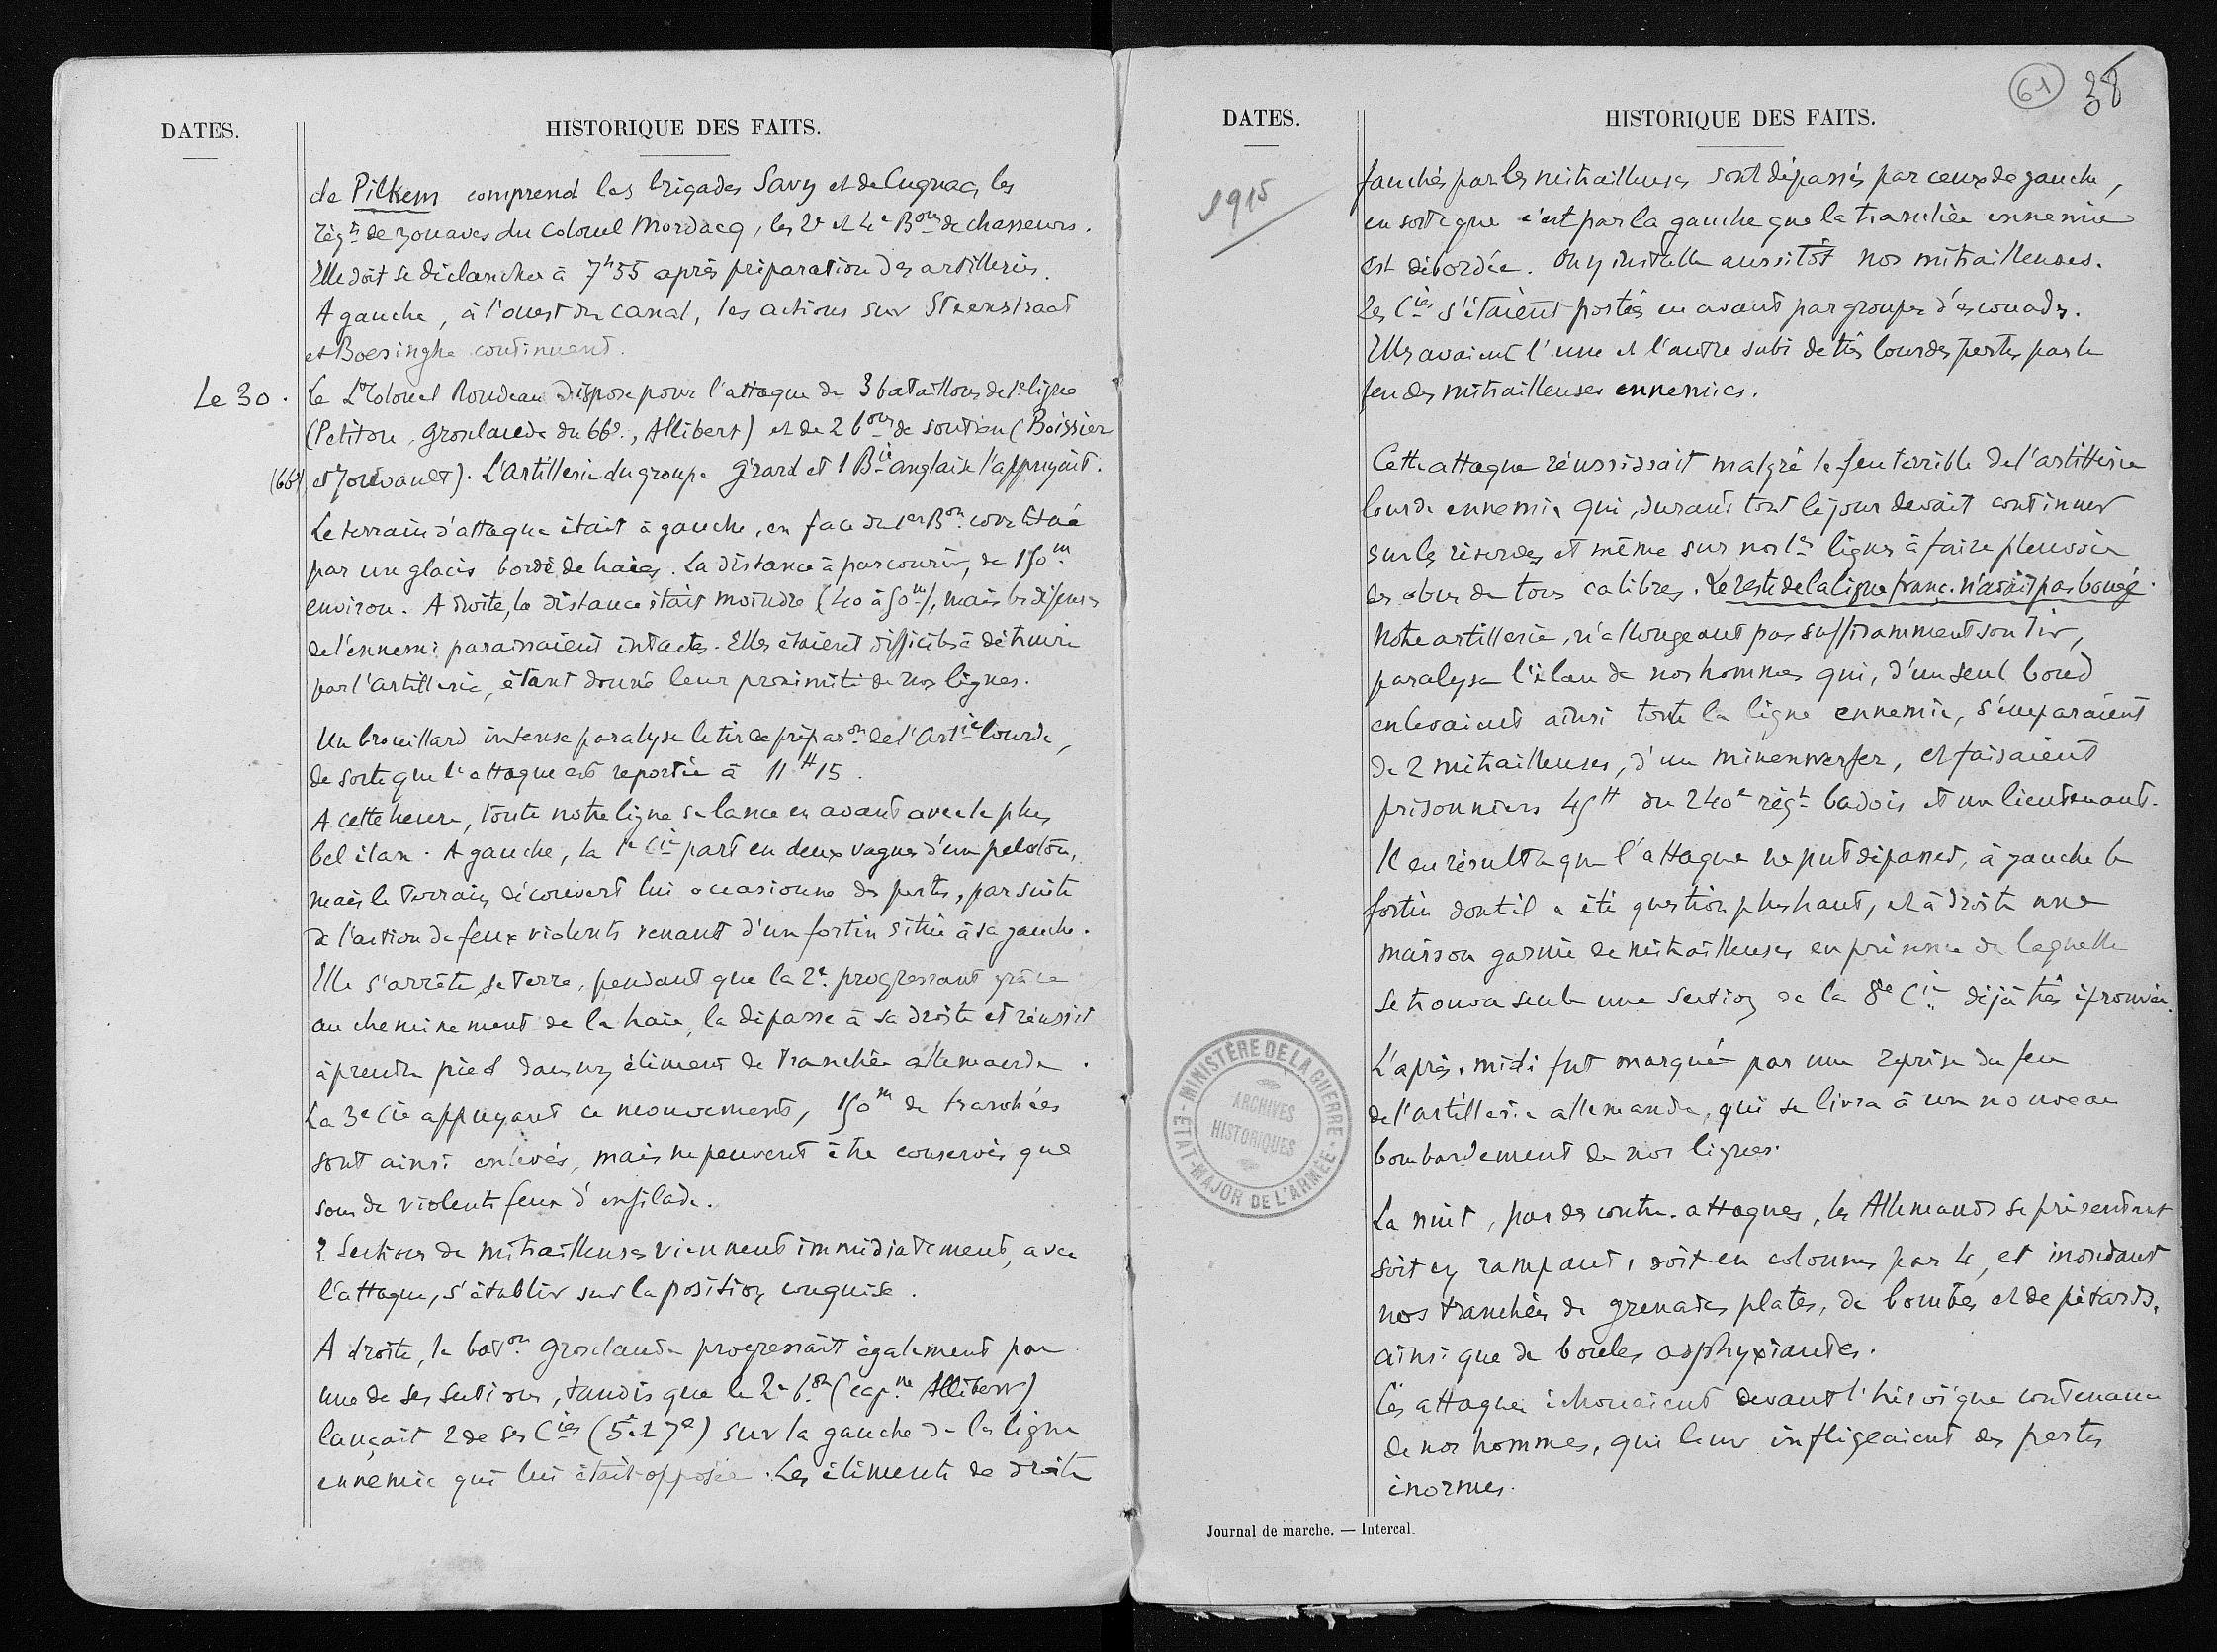 DATES.
HISTORIQUE DES FAITS.
de Pilkem comprend les brigades Savy et de Cugnac, les
régts de zouaves du Colonel Mordacq, les 2e et 4e Bons de chasseurs.
Elle doit se déclancher à 7h55 après préparation des artilleries.
A gauche, à l'ouest du canal, les actions sur Steenstraat
et Boesinghe continuent.
Le 30. Le Lt Colonel Rondeau dispose pour l'attaque de 3 bataillons de 1e ligne
(Petiton, Groslaude du 66e, Allibert) et de 2 bons de soutien (Boissier
(66e) et Jouvault). L'Artillerie du groupe Girard et 1 Bie anglaise l'appuyait.
Le terrain d'attaque était à gauche, en face du 1er Bon constitué
par un glacis bordé de haies. La distance à parcourir, de 150m
environ. A droite, la distance était moindre (40 à 50m), mais les défenses
de l'ennemi paraissaient intactes. Elles étaient difficiles à détruire
par l'artillerie, étant donné leur proximité de nos lignes.
Un brouillard intense paralyse le tir de préparon de l'Artie lourde,
de sorte que l'attaque est reportée à 11H15.
A cette heure, toute notre ligne se lance en avant avec le plus
bel élan. A gauche, la 1e Cie part en deux vagues d'un peloton,
mais le terrain découvert lui occasionne des pertes, par suite
de l'action de feux violents venant d'un fortin situé à sa gauche.
Elle s'arrête, se terre, pendant que la 2e progressant grâce
au cheminement de la haie, la dépasse à sa droite et réussit
à prendre pied dans un élément de tranchée allemande.
La 3e Cie appuyant ce mouvement, 150m de tranchées
sont ainsi enlevés, mais ne peuvent être conservés que
sous de violents feux d'enfilade.
2 Sections de mitrailleuses viennent immédiatement, avec
l'attaque, s'établir sur la position conquise.
A droite, le baton Groslaude progressait également par
une de ses sections, tandis que le 2e bon (capne Allibert)
lançait 2 de ses Cies (5e et 7e) sur la gauche de la ligne
ennemie qui lui était opposée. Les éléments de droite
61 38
DATES.
HISTORIQUE DES FAITS.
1915
fauchés par les mitrailleuses sont dépassés par ceux de gauche,
en sorte que c'est par la gauche que la tranchée ennemie
est débordée. On y installe aussitôt nos mitrailleuses.
Les Cies s'étaient portées en avant par groupes d'escouades.
Elles avaient l'une et l'autre subi de très lourdes pertes par le
feu des mitrailleuses ennemies.
Cette attaque réussissait malgré le feu terrible de l'artillerie
lourde ennemie qui, durant tout le jour devait continuer
sur les réserves et même sur nos 1es lignes à faire pleuvoir
des obus de tous calibres. Le reste de la ligne franç. n'avait pas bougé.
Notre artillerie, n'allongeant pas suffisamment son tir,
paralysa l'élan de nos hommes qui, d'un seul bond
enlevaient ainsi toute la ligne ennemie, s'emparaient
de 2 mitrailleuses, d'un minenwerfer, et faisaient
prisonniers 45H du 240e régt badois et un lieutenant.
Il en résulta que l'attaque ne put dépasser, à gauche le
fortin dont il a été question plus haut, et à droite une
maison garnie de mitrailleuses en présence de laquelle
se trouva seule une section de la 8e Cie déjà très éprouvée.
L'après-midi fut marquée par une reprise du feu
de l'artillerie allemande, qui se livra à un nouveau
bombardement de nos lignes.
La nuit, par des contre-attaques, les Allemands se présentent
soit en rampant, soit en colonnes par 4, et inondant
nos tranchées de grenades plates, de bombes et de pétards,
ainsi que de boules asphyxiantes.
Ces attaques échouaient devant l'héroïque contenance
de nos hommes, qui leur infligeaient des pertes
énormes.
MINISTÈRE DE LA GUERRE
ARCHIVES
HISTORIQUES
ÉTAT-MAJOR DE L'ARMÉE
Journal de marche. — Intercal.